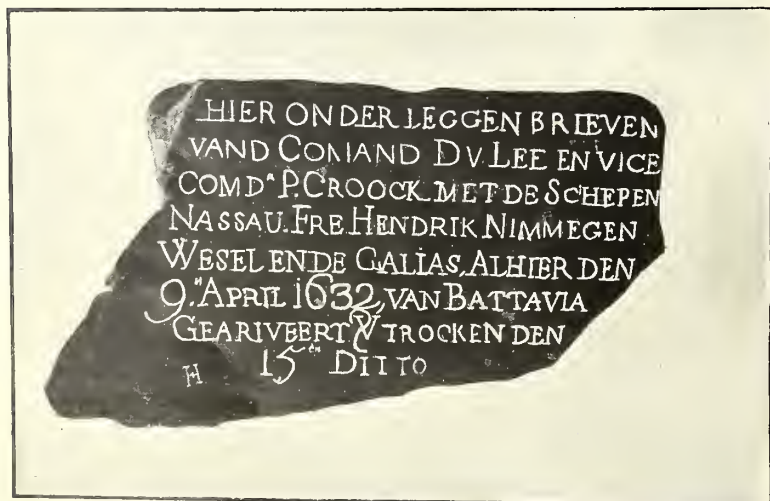 HIER ONDER LEGGEN BRIEVEN
VAND COMAND DV. LEE EN VICE
COMDR P. CROOCK MET DE SCHEPEN
NASSAU. FRE HENDRIK NIMMEGEN
WESEL ENDE GALIAS, ALHIER DEN
9.N APRIL 1632, VAN BATTAVIA
GEARIVEERT & VTROCKEN DEN
15EN DITTO
H